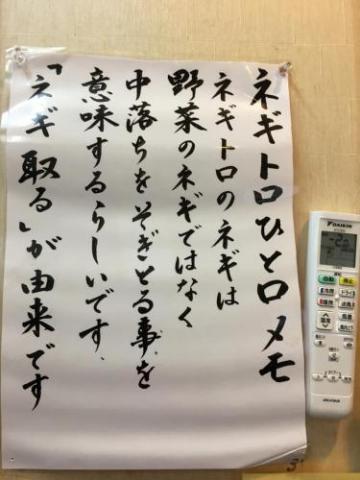 ネギトロひと口メモ
ネギトロのネギは
野菜のネギではなく
中落ちをそぎとる事を
意味するらしいです、
「ネギ取る」が由来です
DAIKIN